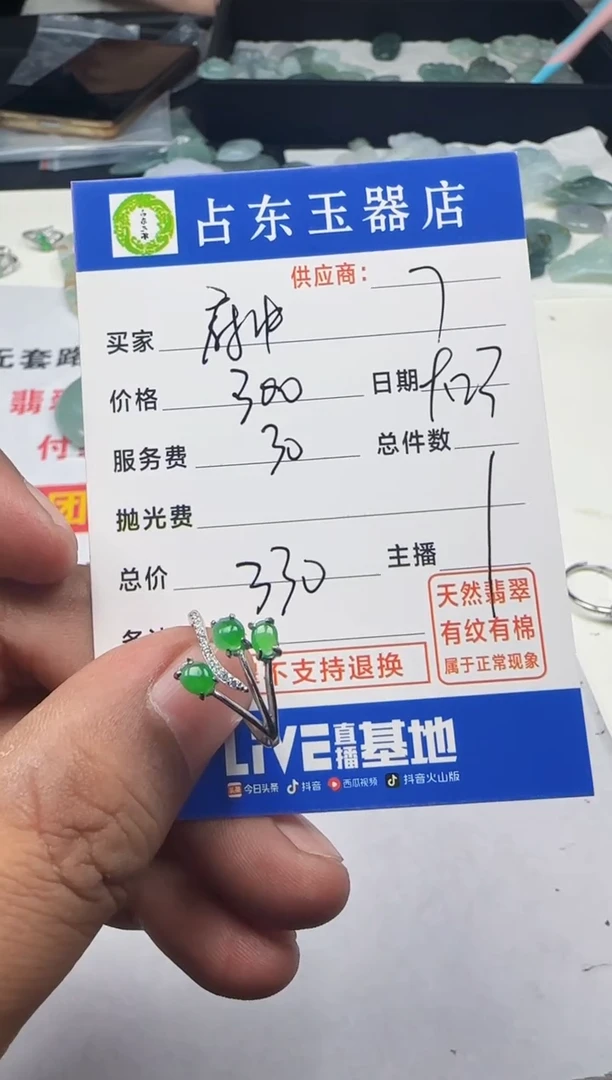 占东玉器店
供应商: 7
买家
价格 300 日期
服务费 30 总件数
抛光费
总价 330 主播
天然翡翠
有纹有棉
属于正常现象
不支持退换
LIVE直播基地
今日头条 抖音 西瓜视频 抖音火山版
无套路
翡
付
团